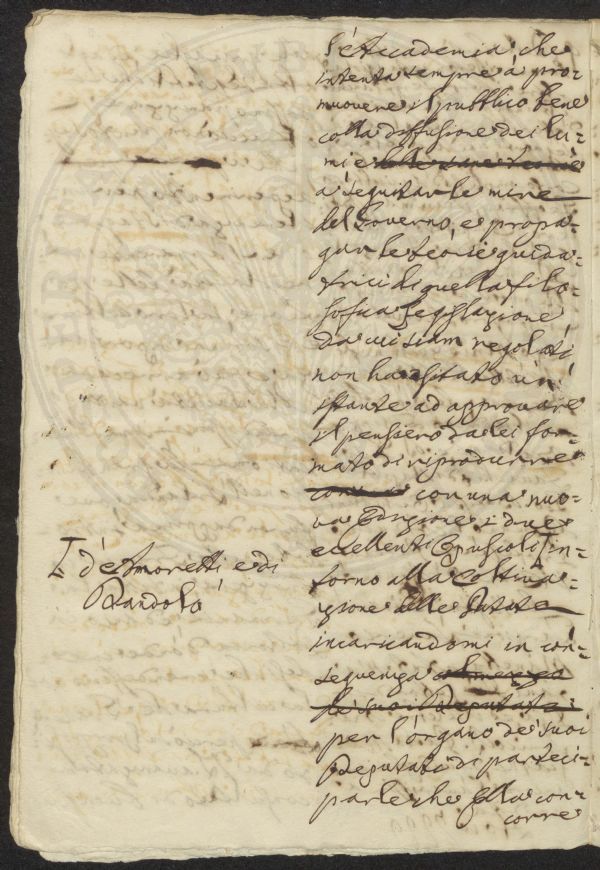 L'Accademia che
intenta sempre à pro=
muovere il pubblico bene
colla diffusione dei lu=
mi e
a seguitar le mire
del Governo, e propa=
gar le teorie guida=
trici di quella filo=
sofica Legislazione
da cui siam regolati
non ha esitato un'
istante ad approvare
il pensiero da lei for=
mato di riprodurre
con una nuo=
va Edizione i due
eccellenti Opuscoli in=
torno alla Coltiva=
zione delle Patate
incaricandomi in con=
seguenza
de suoi Deputati
per l'organo de' suoi
Deputati di parteci=
parle che Ella con=
corre
d'Amoretti e di
Dandolo